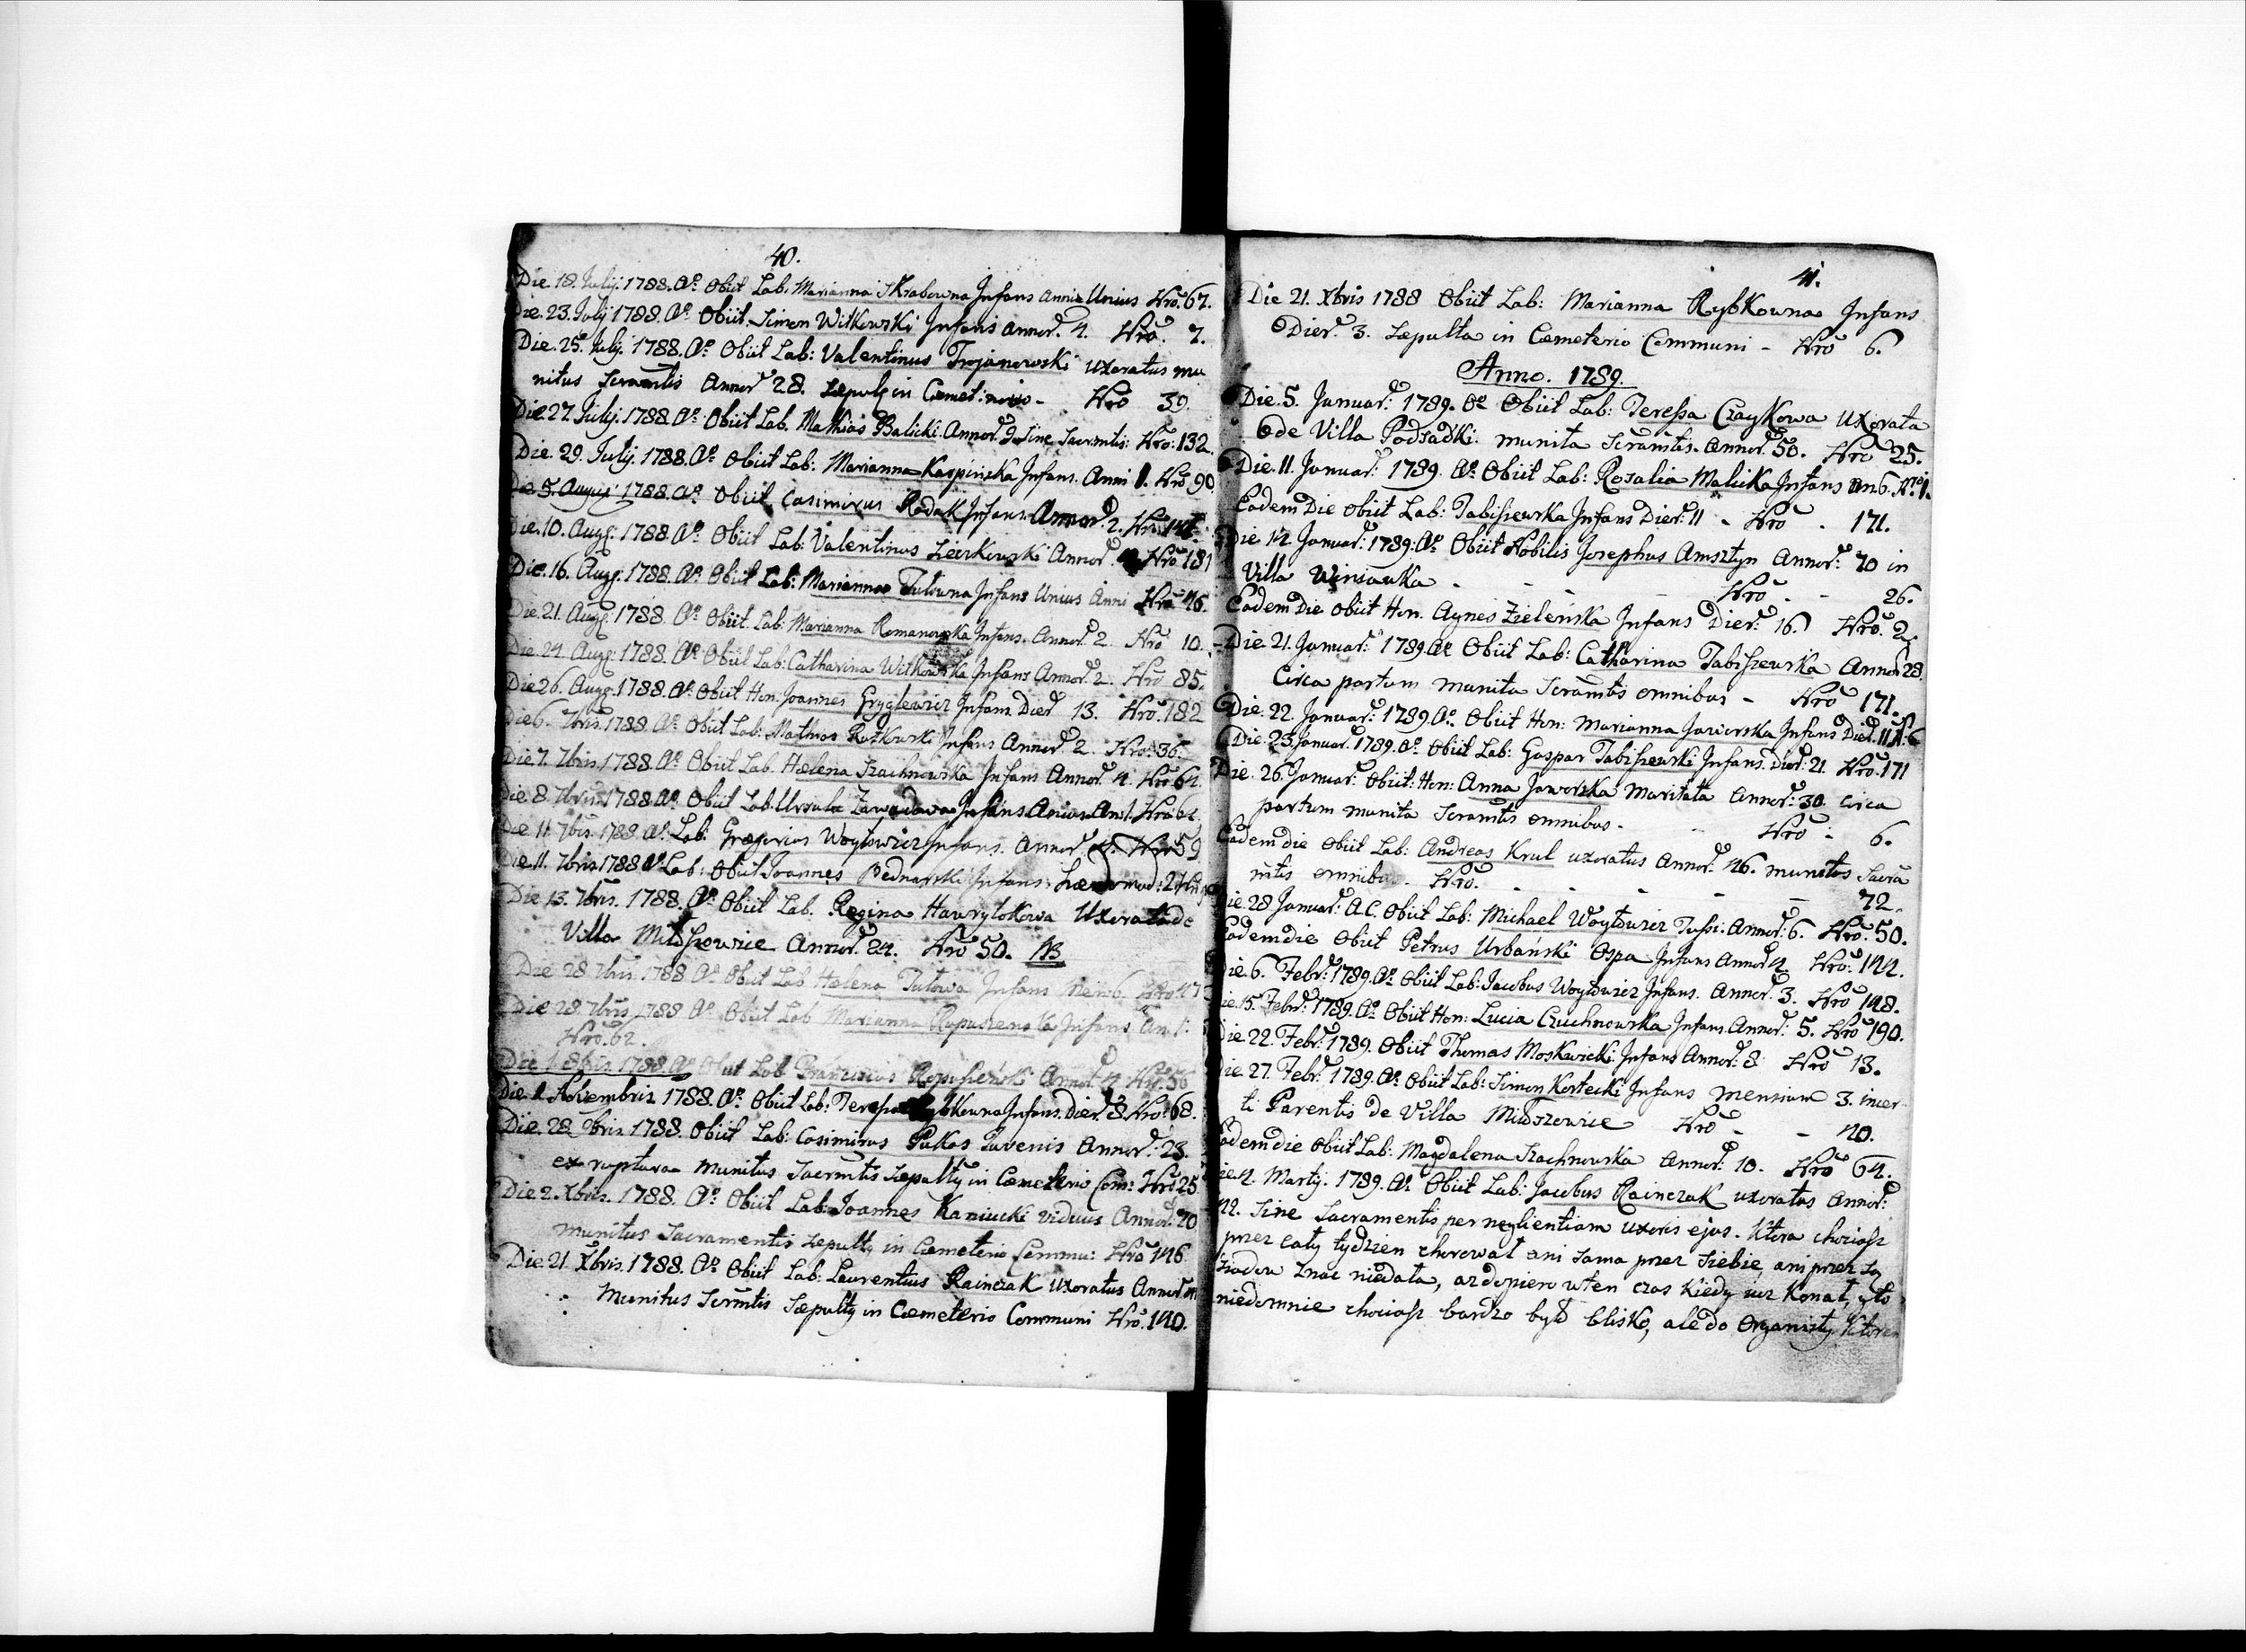 40.
Die 18. Julij. 1788. Aº Obiit Lab. Marianna Skrabowna Infans annis Unius Nrō 67.
Die. 23. July 1788. Aº Obiit Simon Witkowski Infans Annor. 4. Nrō. 7.
Die. 25. July. 1788. Aº Obiit Lab: Valentinus Trojanowski uxoratus mu
nitus Scramtis Annor 28. sepul in Cæmet: - Nrō 39.
Die. 27. July. 1788. Aº Obiit Lab. Mathias Balicki. Annor. 9. Sine Sacrmtis: Nrō: 132.
Die. 29. July. 1788. Aº Obiit Lab: Marianna Karpinska Infans. Anni 1. Nrō 90.
Die 5. Augusi 1788. Aº Obiit Casimirus Rodak Infans Annor. 2. Nrō
Die. 10. Augs. 1788. Aº Obiit Lab: Valentinus Annor. Nrō 181
Die. 16. Augs. 1788. Aº Obiit Lab: Marianna Tutowna Infans Unius Anni Nrō 46.
Die 21. Augs. 1788. Aº Obiit Lab: Marianna Romanowska Infans. Annor. 2. Nrō 10.
Die. 24. Augs. 1788. Aº Obiit Lab: Catharina Witkowska Infans Annor. 2. Nrō 85.
Die 26. Augs. 1788. Aº Obiit Hon. Joannes Gryglewicz Infans Dier 13. Nrō. 182
Die 6. 7bris. 1788. Aº Obiit Lab: Mathias Rutkowski Infans Annor. 2. Nrō. 36.
Die 7. 7bris. 1788. Aº Obiit Lab. Hælena Szachnowska Infans Annor. 4. Nrō 64.
Die. 8. 7bris. 1788. Aº Obiit Lab. Ursula Infans An 1. Nrō 62.
Die 11. 7bris. 1788. Aº. Lab: Gregorius Woytowicz Infans. Annor. Nrō 59
Die. 11. 7bris 1788 Aº Lab: Obiit Joannes Bednarski Infans. 2
Die 13. 7bris. 1788. Aº Obiit Lab. Regina Hawrylokowa Uxorata de
Villa Miłoszewice Annor. 24. Nrō 50. NB
Die 28 7bris. 1788 Aº Obiit Lab Hælena Tutowa Infans 6. Nrō 47
Die 28. 7bris 1788 Aº Obiit Lab Marianna Infans. An. 1.
Nrō. 62.
Die 1. 8bris. 1788. Aº Obiit Lab Franciscus Annor. 4 Nrō. 56
Die. 1. Novembris 1788. Aº Obiit Lab: Teresia Rybkowna Infans. Dier. 8. Nrō: 68.
Die. 28. 9bris. 1788. Obiit Lab: Casimirus Pukos Juvenis Annor. 23.
ex ruptura munitus Sacrmtis Sepultg in Cæmeterio Com: Nrō 25
Die 2. Xbris. 1788. Aº Obiit Lab: Joannes Kaniucki viduus Annor. 70
munitus Sacramentis sepultg in Cæmeterio Commu: Nrō 146
Die. 21 Xbris. 1788. Aº Obiit Lab: Laurentius Rainczak Uxoratus Annor.
Munitus Scrmtis Sæpultg in Cæmeterio Communi Nrō. 140.
41.
Die 21. Xbris 1788 Obiit Lab: Marianna Rybkowna Infans
Dier. 3. Sæpulta in Cæmeterio Communi - Nrō 6.
Anno. 1789.
Die. 5. Januar: 1789. Aº Obiit Lab: Teressa Czaykowa Uxorata
de Villa Podsadki. munita Scramtis. Annor. 50. Nrō 25.
Die. 11. Januar: 1789. Aº Obiit Lab: Rosalia Malicka Infans an 6. Nrō 1.
Eadem Die obiit Lab: Tabiszewska Infans Dier: 11 - Nrō - 171.
Die 14. Januar: 1789: Aº Obiit Nobilis Josephus Amsztyn Annor: 70 in
Villa Winiawka - - - Nrō - - 26.
Eadem Die obiit Hon. Agnes Zielenska Infans Dier: 16. Nrō. 2.
Die. 21. Januar: 1789. Aº Obiit Lab: Catharina Tabiszewska Annor 28.
Circa partum munita Scramtis omnibus - Nrō 171.
Die. 22. Januar: 1789. Aº. Obiit Hon: Marianna Jaworska Infans Dier. 11 N: 6
Die. 23. Januar. 1789. Aº. Obiit Lab: Gaspar Tabiszewski Infans. dier: 21. Nrō. 171
Die. 26. Januar: Obiit: Hon: Anna Jaworska Maritata Annor: 30. circa
partum munita Scramtis omnibus. - - Nrō - 6.
Eadem die Obiit Lab: Andreas Krul uxoratus Annor: 46. munitus Sacra
mtis omnibus - Nrō. - - - - 72.
Die. 28 Januar: A.C. Obiit Lab: Michael Woytowicz Tussi: Annor: 6. Nrō: 50.
Eadem die Obiit Petrus Urbański Ospa Infans Annor 4. Nrō: 144.
Die. 6. Febr: 1789. Aº Obiit Lab: Jacobus Woytowicz Infans. Annor. 3. Nrō 148.
Die. 15. Febr: 1789. Aº Obiit Hon: Lucia Czuchnowska Infans Annor: 5. Nrō 190.
Die. 22. Febr: 1789. Obiit Thomas Moskwicki Infans Annor: 8 Nrō 13.
Die. 27. Febr: 1789. Aº Obiit Lab: Simon Kortecki Infans Mensium 3. incer-
ti Parentis de Villa Miłoszewice Nrō - - 40.
Eadem die Obiit Lab: Magdalena Szachnowska Annor: 10. Nrō 64.
Die 4. Martij. 1789. Aº Obiit Lab: Jacobus Rainczak uxoratus Annor:
42. Sine Sacramentis per neglientiam uxoris ejus. Ktora chociasz
przez cały tydzien chorował ani sama przez siebie, ani przez Są
siadow znac niedała, az dopiero w ten czas kiedy iuz konał, y to
niedomnie chociasz bardzo był blisko, ale do Organisty ktoren